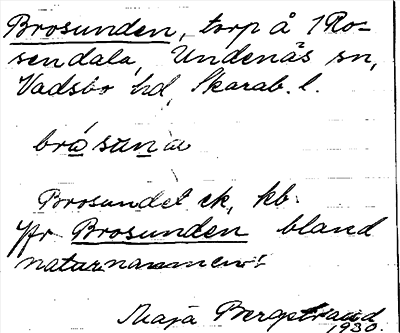 Brosunden, torp å 1 Ro-
sendala, Undenäs sn,
Vadsbo hd, Skarab. l.
bråsunæ
Brosundet ek, kb.
Jfr Brosunden bland
naturnamnen!
Maja Bergstrand
1930.